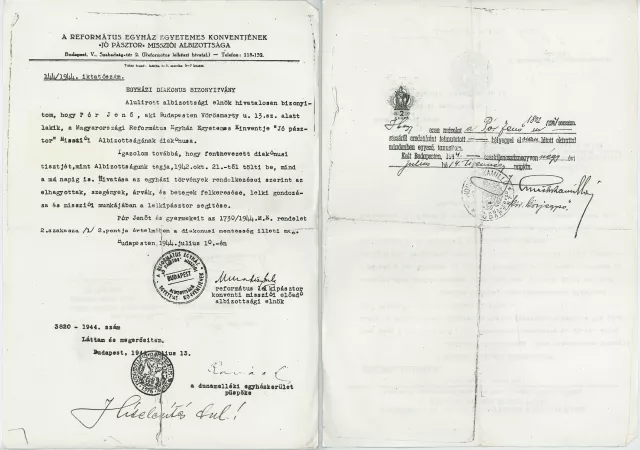 A REFORMÁTUS EGYHÁZ EGYETEMES KONVENTJÉNEK
„JÓ PÁSZTOR" MISSZIÓI ALBIZOTTSÁGA
Budapest, V., Szabadság-tér 2. (Református lelkészi hivatal) — Telefon: 118-152.
144/1944. iktatószám.
EGYHÁZI DIAKONUS BIZONYITVÁNY
Alulirott albizottsági elnök hivatalosan bizonyi-
tom, hogy Pór Jenő, aki Budapesten Vörösmarty u. 13.sz. alatt
lakik, a Magyarországi Református Egyház Egyetemes Konventje "Jó pász-
tor" Missziói Albizottságának diakónusa.
Igazolom továbbá, hogy fentnevezett diakónusi
tisztjét, mint Albizottságunk tagja, 1942.okt. 21.-től tölti be, mind
a mai napig is. Hivatása az egyházi törvények rendelkezései szerint az
elhagyottak, szegények, árvák, és betegek felkeresése, lelki gondozá-
sa és missziói munkájában a lelkipásztor segitése.
Pór Jenőt és gyermekeit az 1730/1944.M.E. rendelet
2.szakasza /1/ 2.pontja értelmében a diakonusi mentesség illeti meg.
Budapesten, 1944.julius 10.-én
A REFORMÁTUS EGYHÁZ
BUDAPEST
EGYETEMES KONVENTJÉNEK
református lelkipásztor
konventi missziói előadó
albizottsági elnök
3820 - 1944. szám
Láttam és megerősitem.
Budapest, 1944. julius 13.
a dunamelléki egyházkerület
püspöke
Hitelesítés túl!
2
Hogy ezen másolat a Pór Jenő úr
részéről eredetiként felmutatott bélyeggel ellátott okirattal
mindenben egyező, tanusítom.
Kelt Budapesten, 194 ezerkilencszáznegyven négy évi
julius
napján.